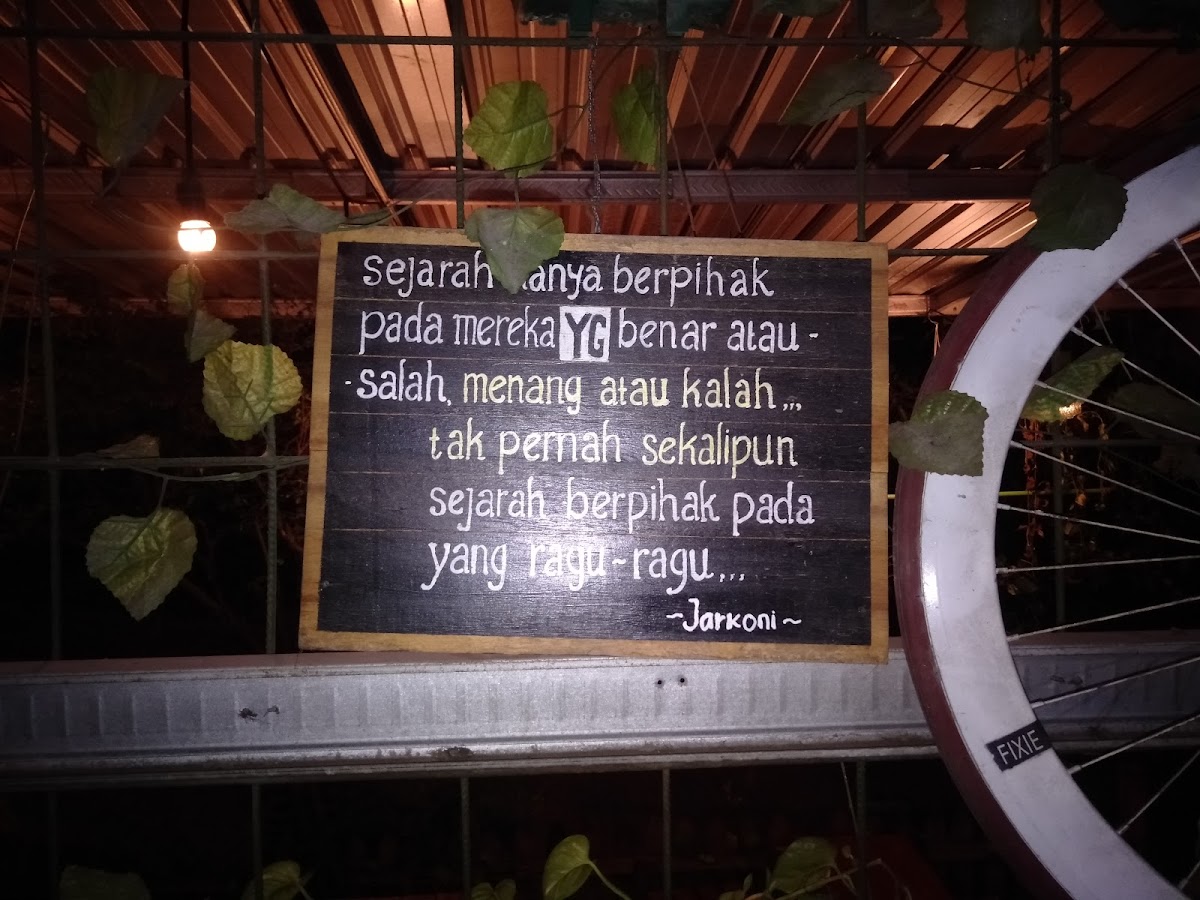 sejarah hanya berpihak
pada mereka YG benar atau -
- salah, menang atau kalah,,,
tak pernah sekalipun
sejarah berpihak pada
yang ragu-ragu,,,
~Jarkoni~
FIXIE